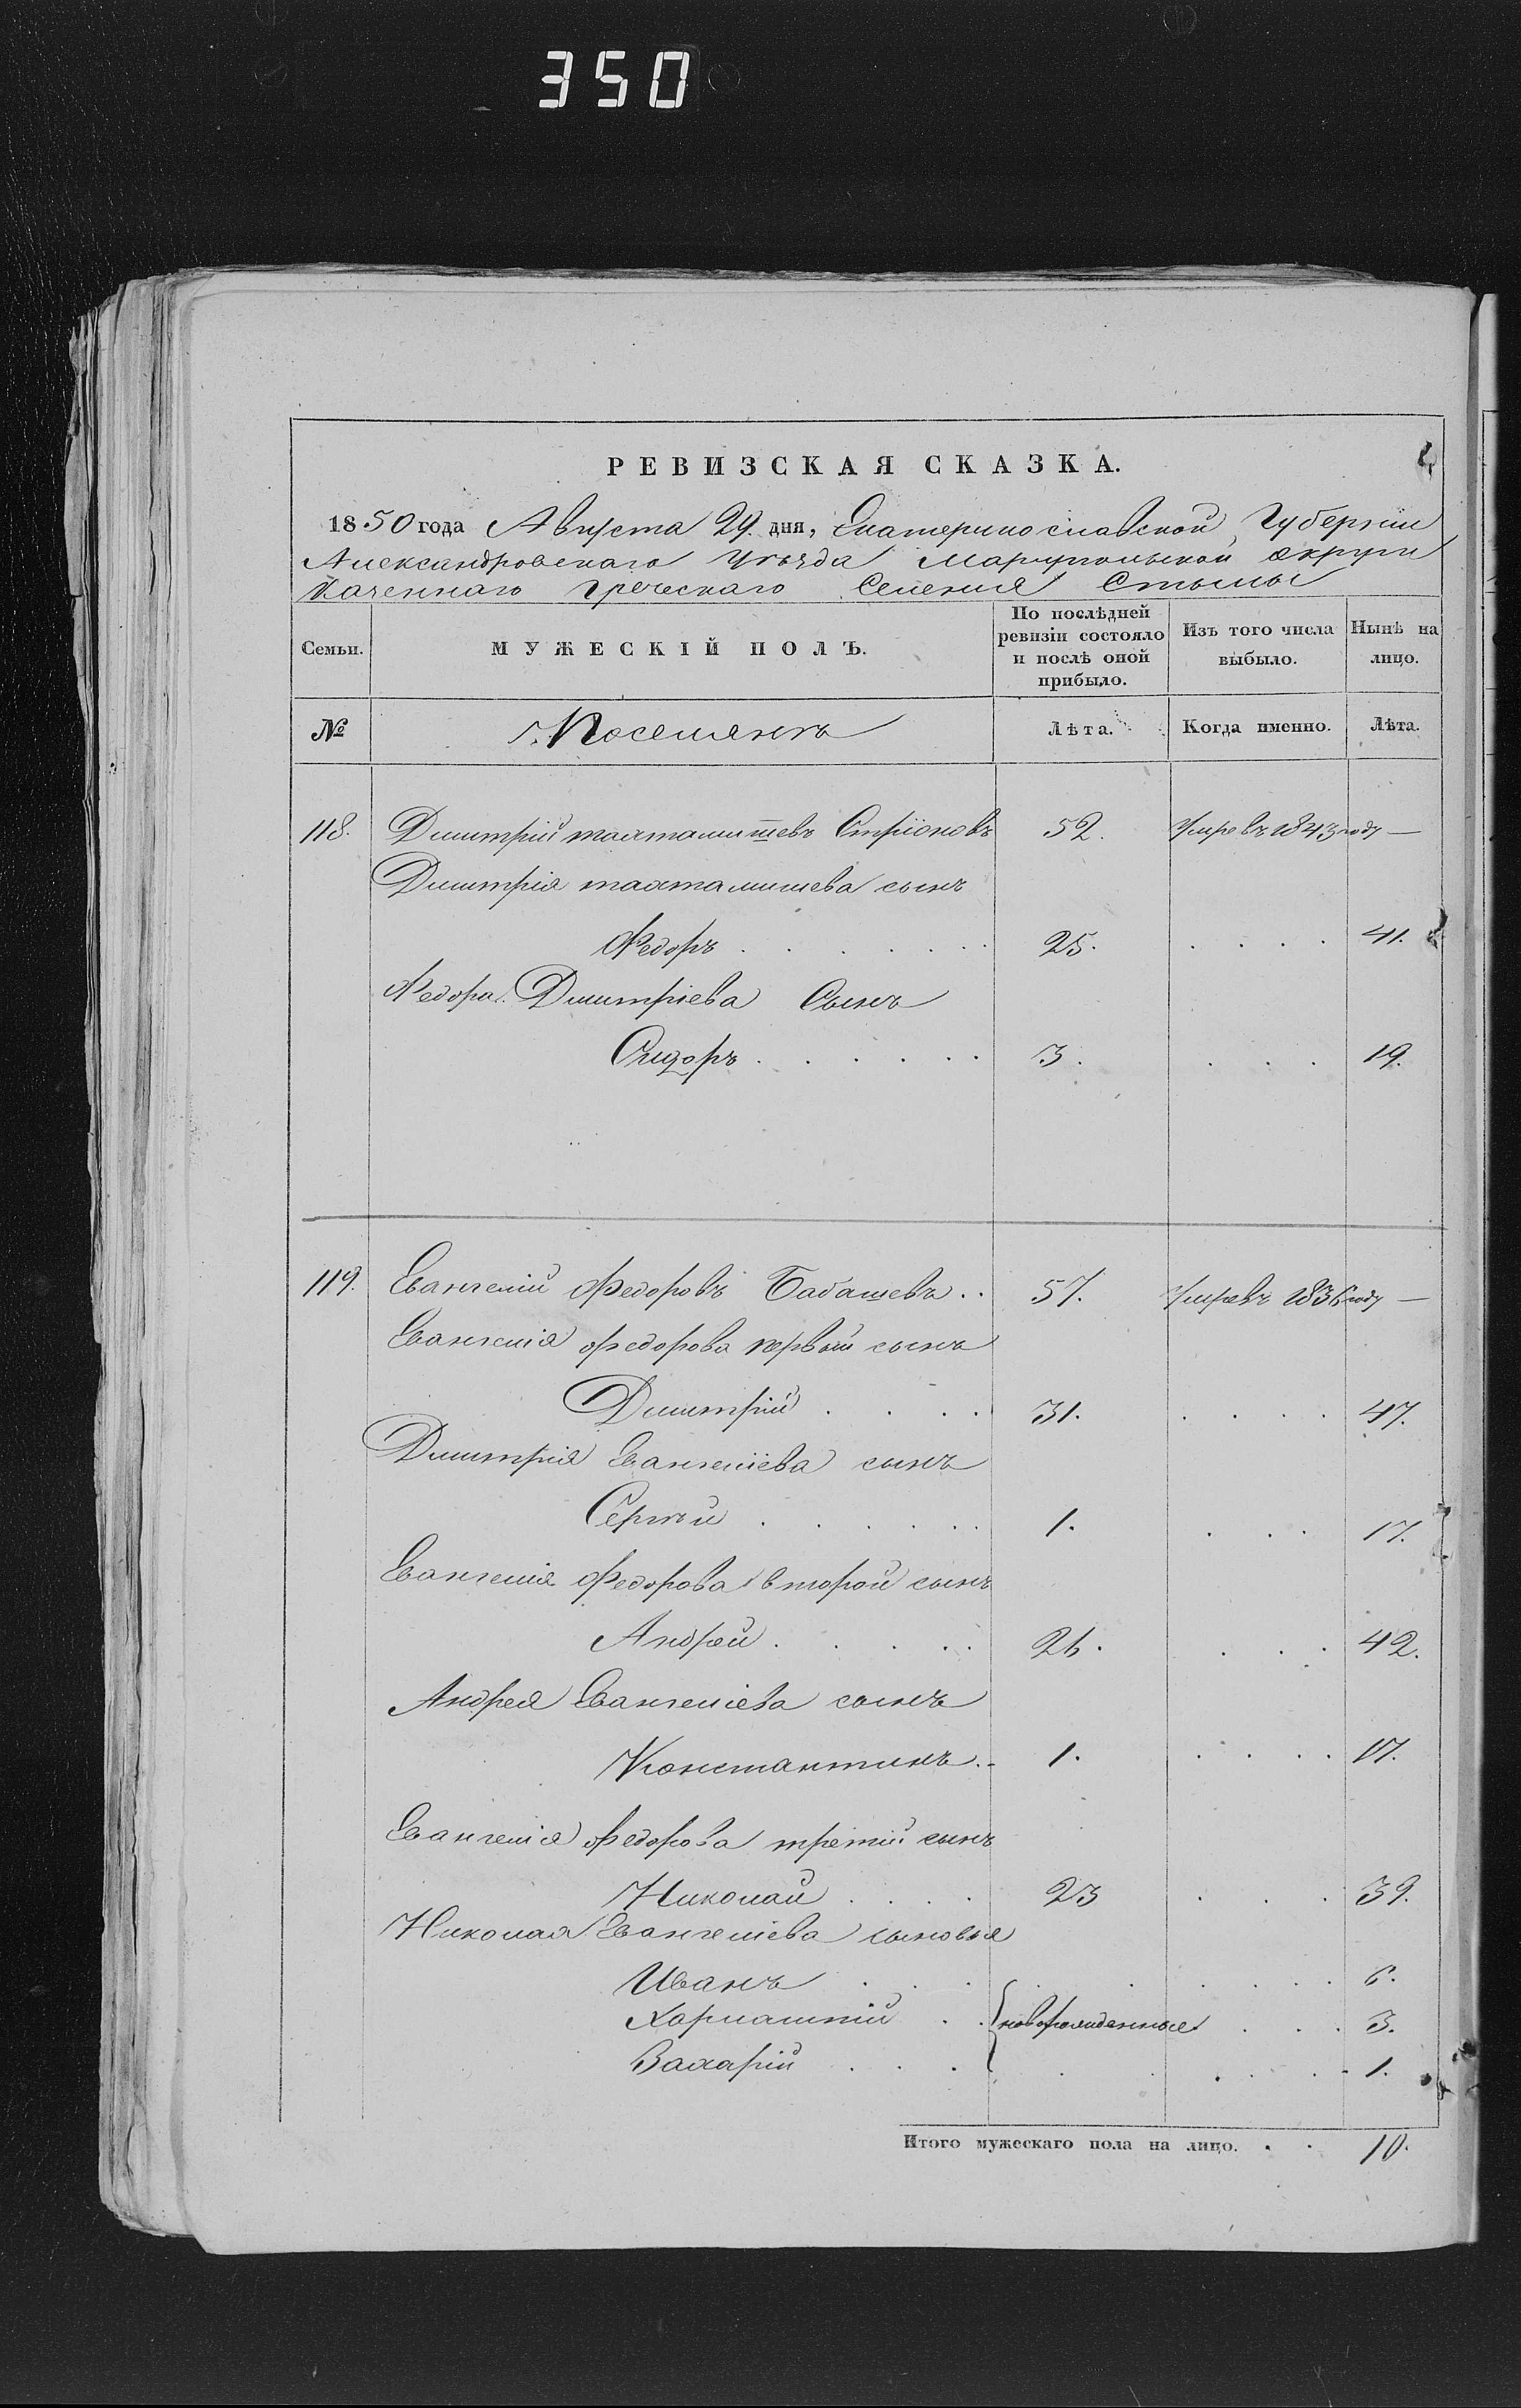 350
РЕВИЗСКАЯ СКАЗКА.
1850 года Августа 29. дня, Екатеринославской Губерніи
Александровскаго Уѣзда Маріупольской округи
Казеннаго Греческаго Селенія Стылы
Семьи. МУЖЕСКІЙ ПОЛЪ. По послѣдней ревизіи состояло и послѣ оной прибыло. Изъ того числа выбыло. Нынѣ на лицо.
№ Поселянъ Лѣта. Когда именно. Лѣта.
118. Дмитрій тахтамишевъ Стріоновъ 52. Умре въ 1843 году —
Дмитрія тахтамишева сынъ
Федоръ 25. 41.
Федора Дмитріева Сынъ
Сидоръ 3. 19.
119. Евангелій Федоровъ Бабашевъ 57. Умре въ 1836 году —
Евангелія федорова первый сынъ
Дмитрій 31. 47.
Дмитрія Евангеліева сынъ
Сергѣй 1. 17.
Евангелія Федорова второй сынъ
Андрей 26. 42.
Андрея Евангеліева сынъ
Константинъ 1. 17.
Евангелія федорова третій сынъ
Николай 23 39.
Николая Евангеліева сыновья
Иванъ 6.
Харлампій новорожденные 3.
Захарій 1.
Итого мужескаго пола на лицо. 10.